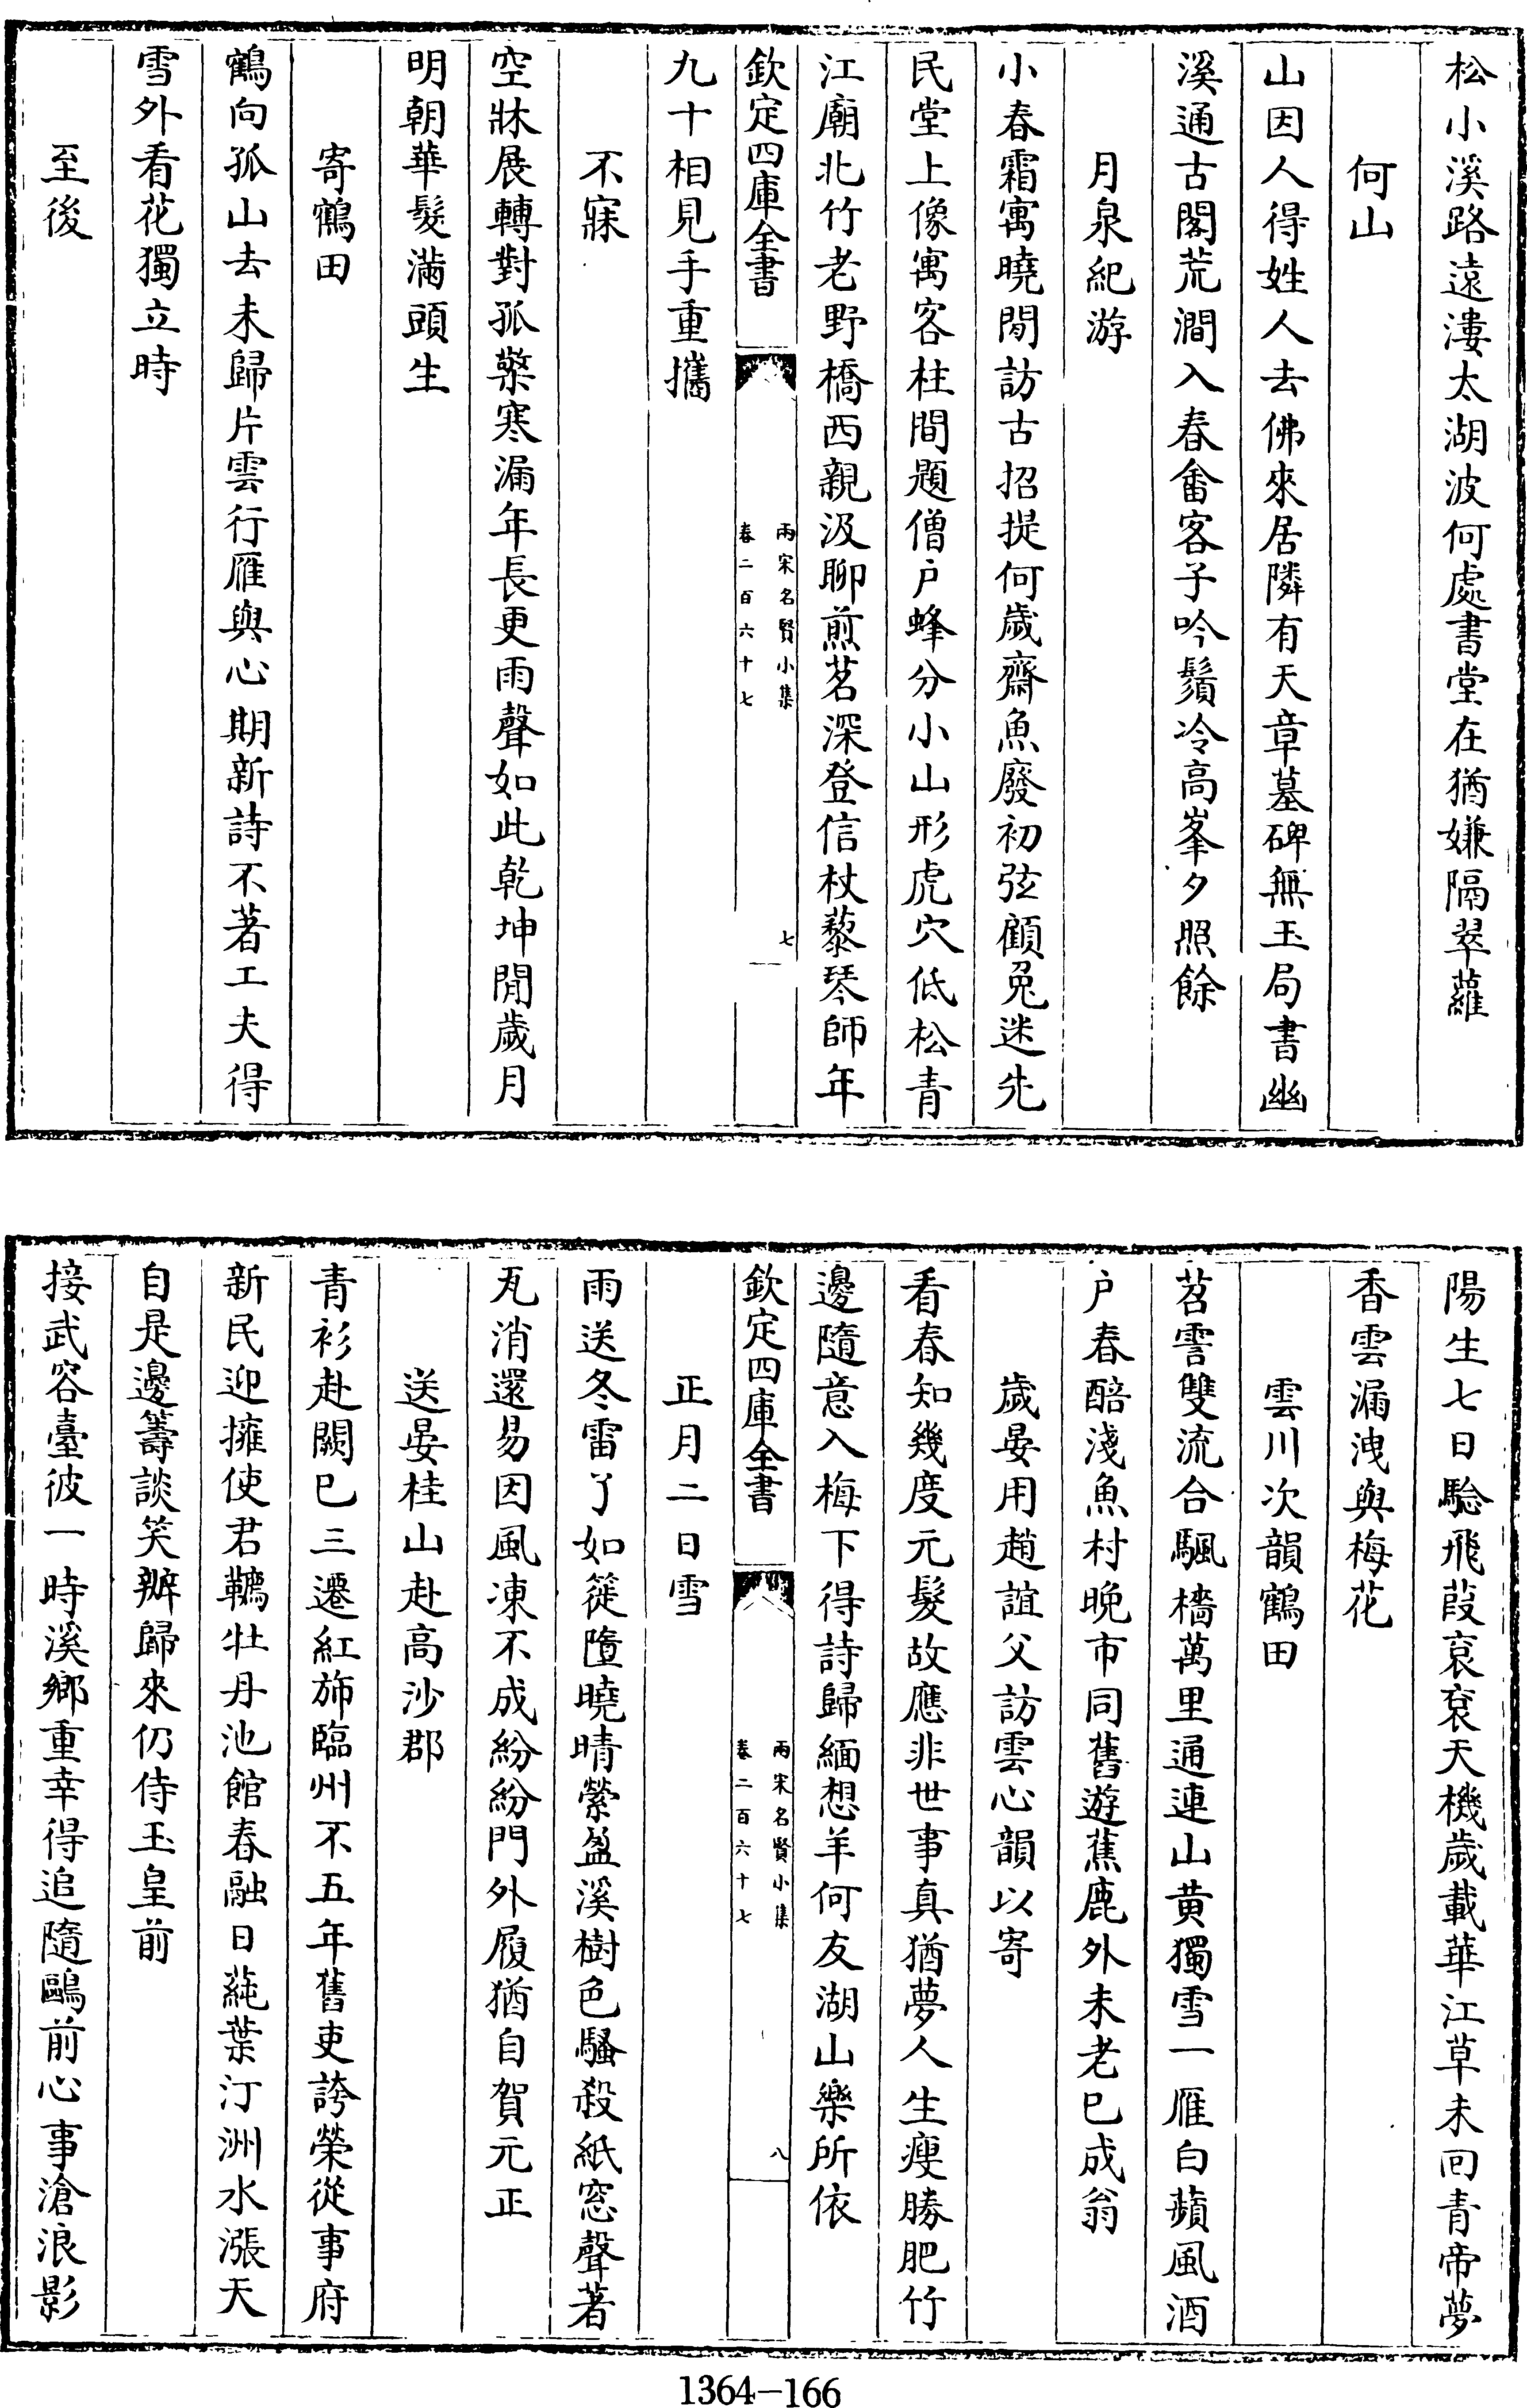 松小溪路遠淒太湖波何處書堂在猶嫌隔翠蘿
何山
山因人得姓人去佛來居隣有天章墓碑無玉局書幽
溪通古閣荒澗入春畬客子吟鬚冷高峯夕照餘
月泉紀游
小春霜寓曉閒訪古招提何歲齋魚廢初弦顧兔迷先
民堂上像寓客柱間題僧戶蜂分小山形虎穴低松青
江廟北竹老野橋西親汲聊煎茗深登信杖藜琴師年
欽定四庫全書
兩宋名賢小集
卷二百六十七
七
九十相見手重攜
不寐
空牀展轉對孤檠寒漏年長更雨聲如此乾坤閒歲月
明朝華髮滿頭生
寄鶴田
鶴向孤山去未歸片雲行雁與心期新詩不著工夫得
雪外看花獨立時
至後
陽生七日驗飛葭袞袞天機歲載華江草未回青帝夢
香雲漏洩與梅花
雲川次韻鶴田
苕霅雙流合颿檣萬里通連山黃獨雪一雁白蘋風酒
戶春醅淺魚村晚市同舊遊蕉鹿外未老已成翁
歲晏用趙誼父訪雲心韻以寄
看春知幾度元髮故應非世事真猶夢人生瘦勝肥竹
邊隨意入梅下得詩歸緬想羊何友湖山樂所依
欽定四庫全書
兩宋名賢小集
卷二百六十七
八
正月二日雪
雨送冬雷了如簁墮曉晴縈盈溪樹色騷殺紙窓聲著
瓦消還易因風凍不成紛紛門外履猶自賀元正
送晏桂山赴高沙郡
青衫赴闕已三遷紅斾臨州不五年舊吏誇榮從事府
新民迎擁使君韉牡丹池館春融日蒓葉汀洲水漲天
自是邊籌談笑辦歸來仍侍玉皇前
接武容臺彼一時溪鄉重幸得追隨鷗前心事滄浪影
1364-166